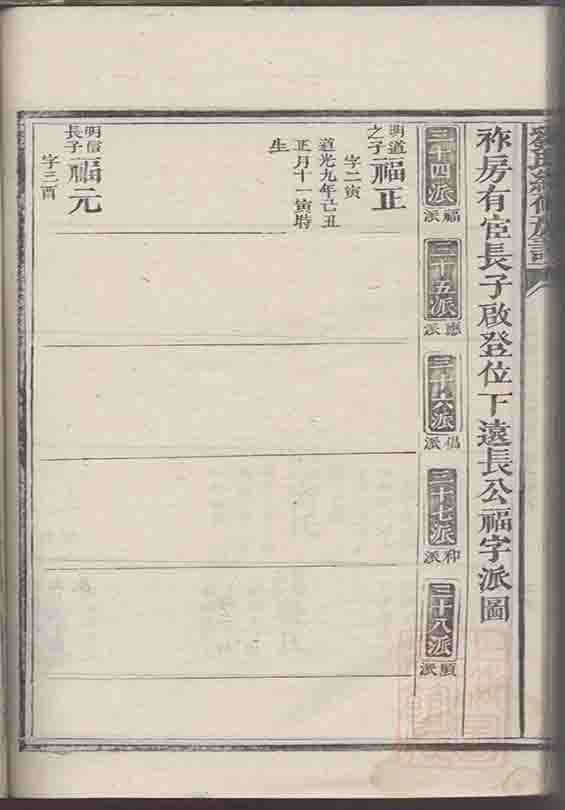 劉氏續修族譜
祚房有宦長子啟登位下遠長公福字派圖
三十四派
福派
三十五派
應派
三十六派
倡派
三十七派
和派
三十八派
順派
明道之子福正
字二寅
道光九年己丑
正月十一寅時
生
明信長子福元
字三酉